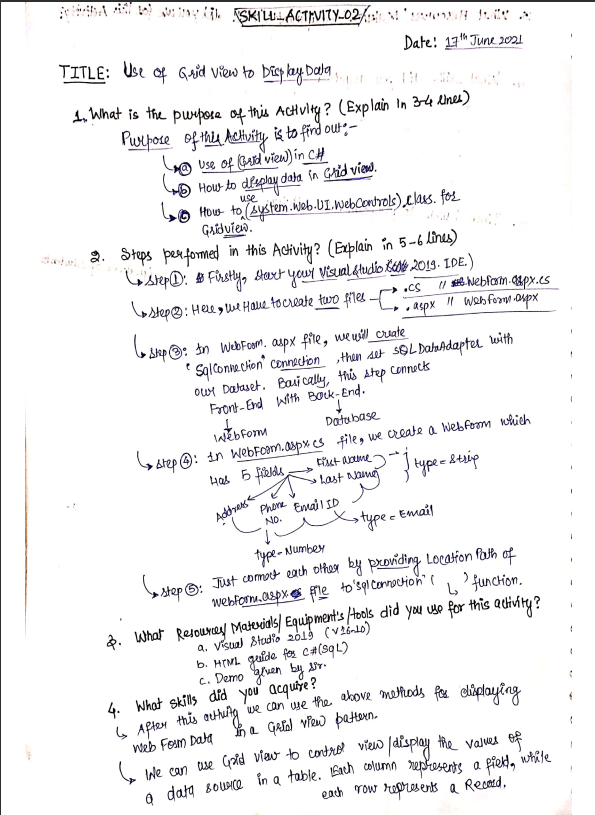 SKILL ACTIVITY-02
Date: 17th June 2021
TITLE: Use of Grid View to Display Data
1. What is the purpose of this Activity? (Explain in 3-4 lines)
Purpose of this Activity is to find out:-
(a) Use of (Grid view) in C#
(b) How to display data in Grid view.
(c) How to use (System.Web.UI.WebControls) class. for
Gridview.
2. Steps performed in this Activity? (Explain in 5-6 lines)
Step ①: Firstly, start your Visual Studio 2019. IDE.)
Step ②: Here, we Have to create two files
.cs // WebForm.aspx.cs
.aspx // WebForm.aspx
Step ③: In WebForm.aspx file, we will create
"SqlConnection" connection, then set SQLDataAdapter with
our Dataset. Basically, this step connects
Front-End With Back-End.
WebForm Database
Step ④: In WebForm.aspx.cs file, we create a WebForm which
Has 5 fields First Name
Last Name type=
Address Phone No. Email ID
type = Email
type=Number
Step ⑤: Just connect each other by providing Location Path of
WebForm.aspx file to 'sqlconnection' ( ) function.
3. What Resources/Materials/Equipment's/tools did you use for this activity?
a. Visual Studio 2019 (v16.10)
b. HTML guide for C# (SQL)
c. Demo given by sir.
4. What skills did you acquire?
After this activity we can use the above methods for displaying
Web Form Data in a Grid view pattern.
We can use Grid View to control view/display the values of
a data source in a table. Each column represents a field, while
each row represents a Record.